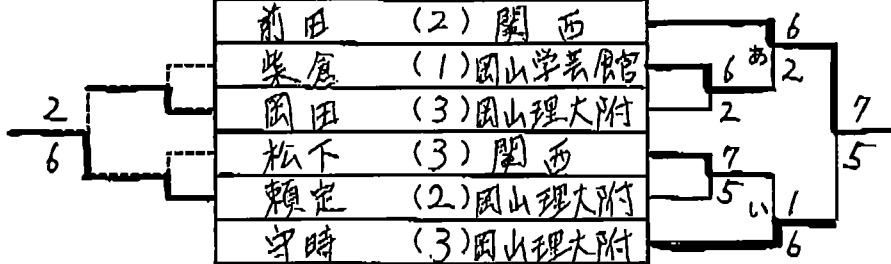 前田 (2) 関西
柴倉 (1) 岡山学芸館
岡田 (3) 岡山理大附
松下 (3) 関西
頼定 (2) 岡山理大附
守時 (3) 岡山理大附
2
6
6
あ
2
6
2
7
5
7
5
い
1
6